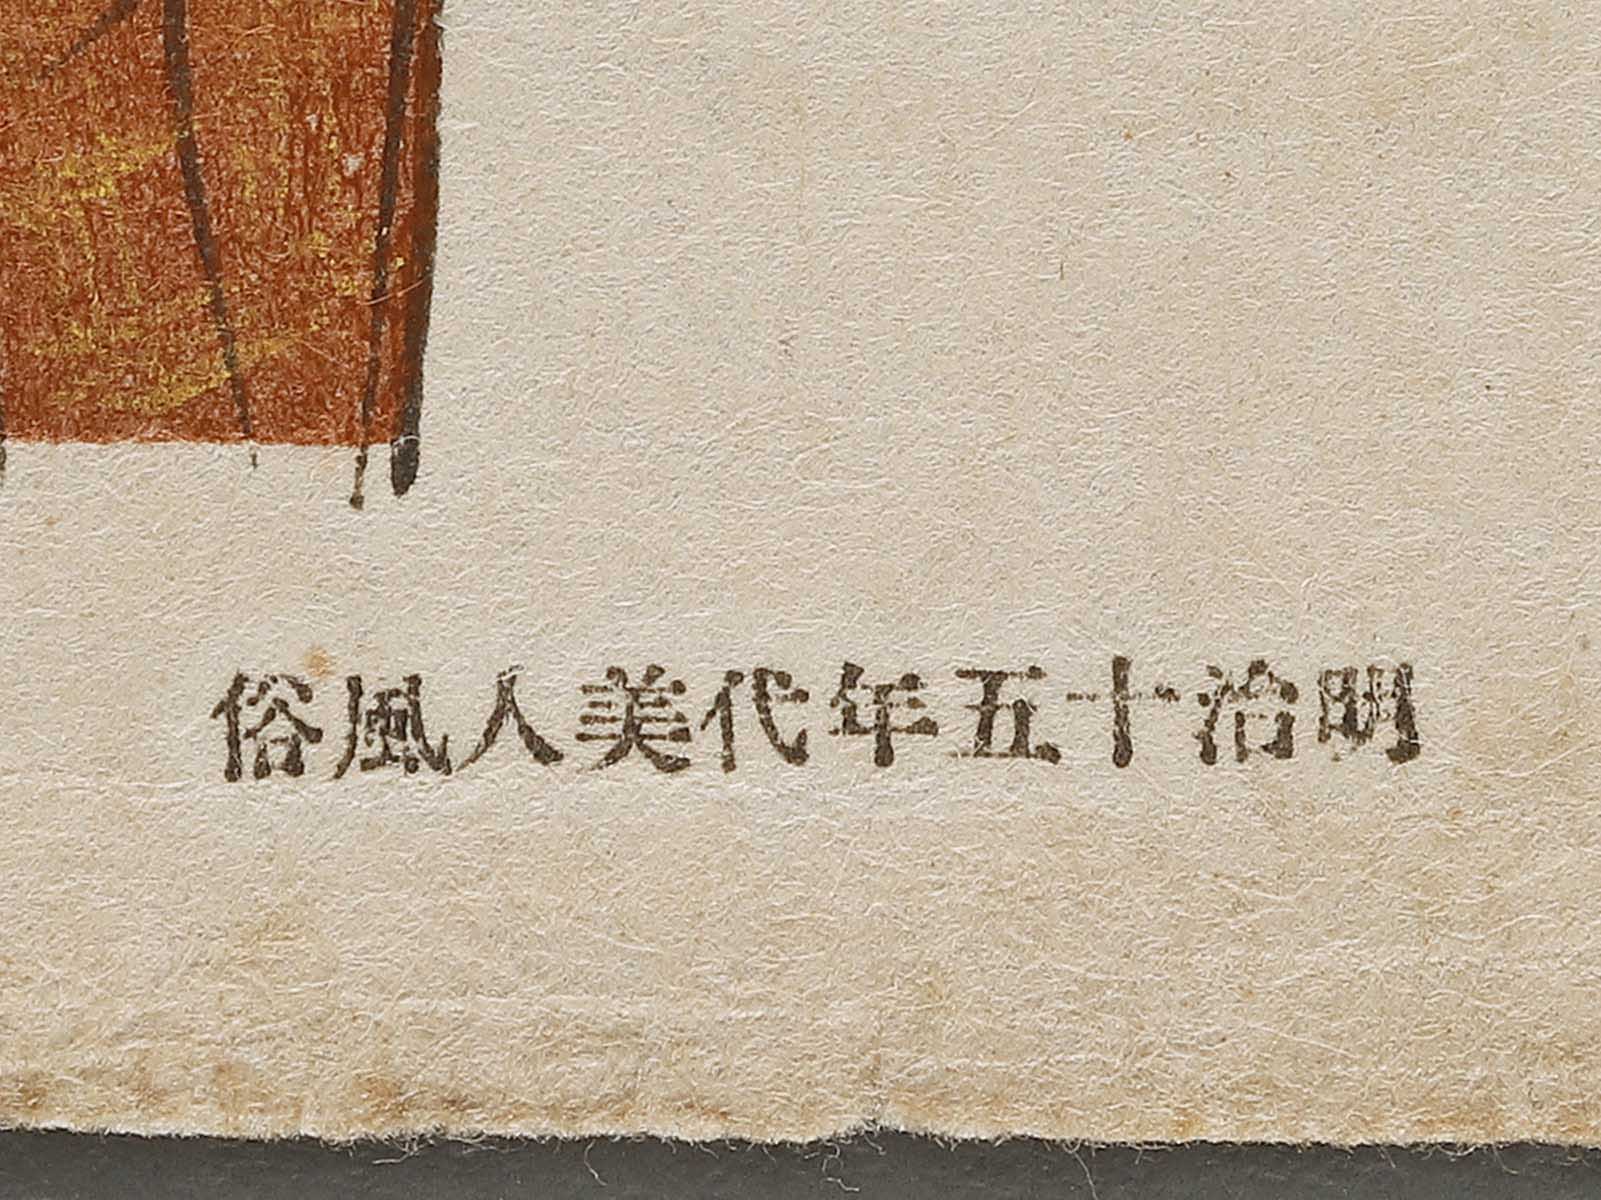 明治十五年代美人風俗